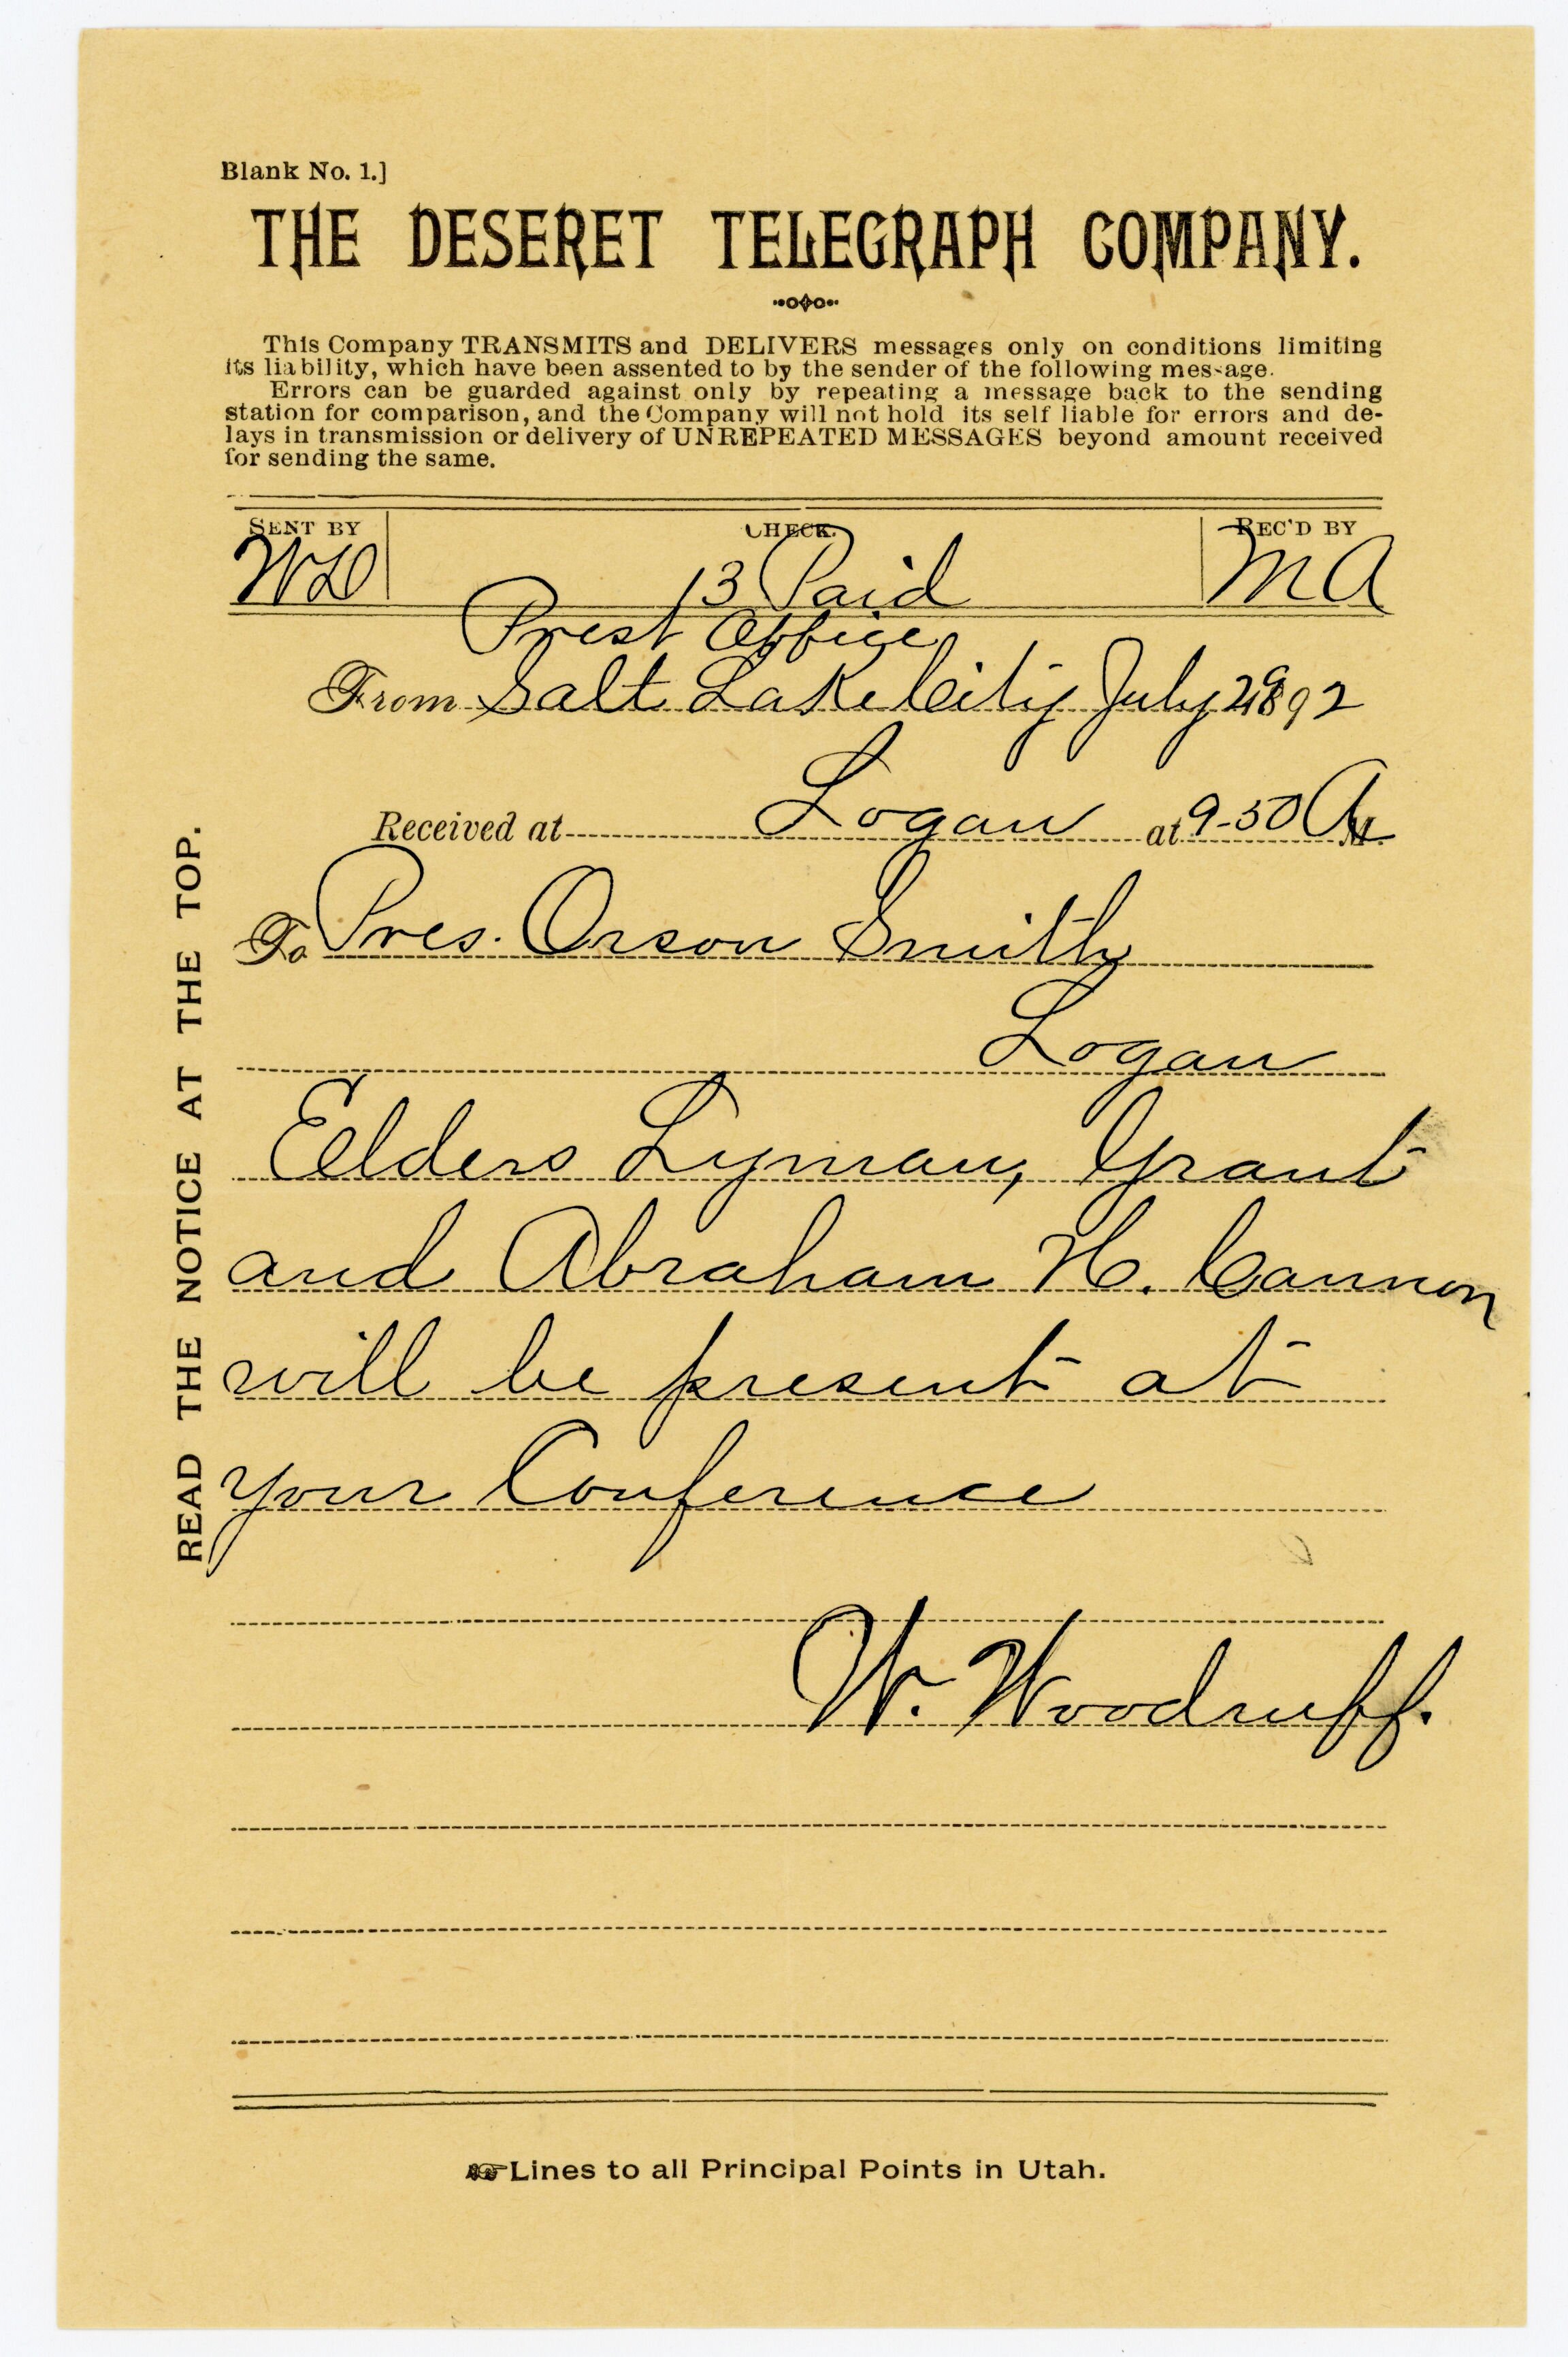 Blank No. 1.]
THE DESERET TELEGRAPH COMPANY.
This Company TRANSMITS and DELIVERS messages only on conditions limiting
its liability, which have been assented to by the sender of the following message.
Errors can be guarded against only by repeating a message back to the sending
station for comparison, and the Company will not hold its self liable for errors and de-
lays in transmission or delivery of UNREPEATED MESSAGES beyond amount received
for sending the same.
SENT BY CHECK. REC'D BY
WD 13 Paid MA
Prest Office
From Salt Lake City July 29 1892
Received at Logan at 9-50 A M.
To Pres. Orson Smith
Logan
Elders Lyman, Grant
and Abraham H. Cannon
will be present at
your Conference
W. Woodruff.
READ THE NOTICE AT THE TOP.
☞Lines to all Principal Points in Utah.